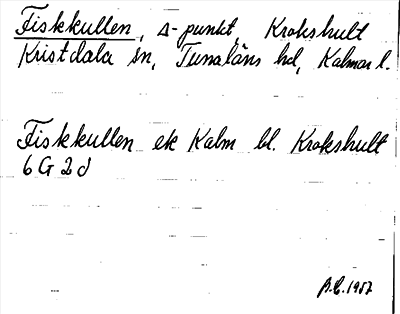 Fiskkullen, Δ-punkt, Krokshult
Kristdala sn, Tunaläns hd, Kalmar l.
Fiskkullen ek Kalm bl. Krokshult
6 G 2 d
1957